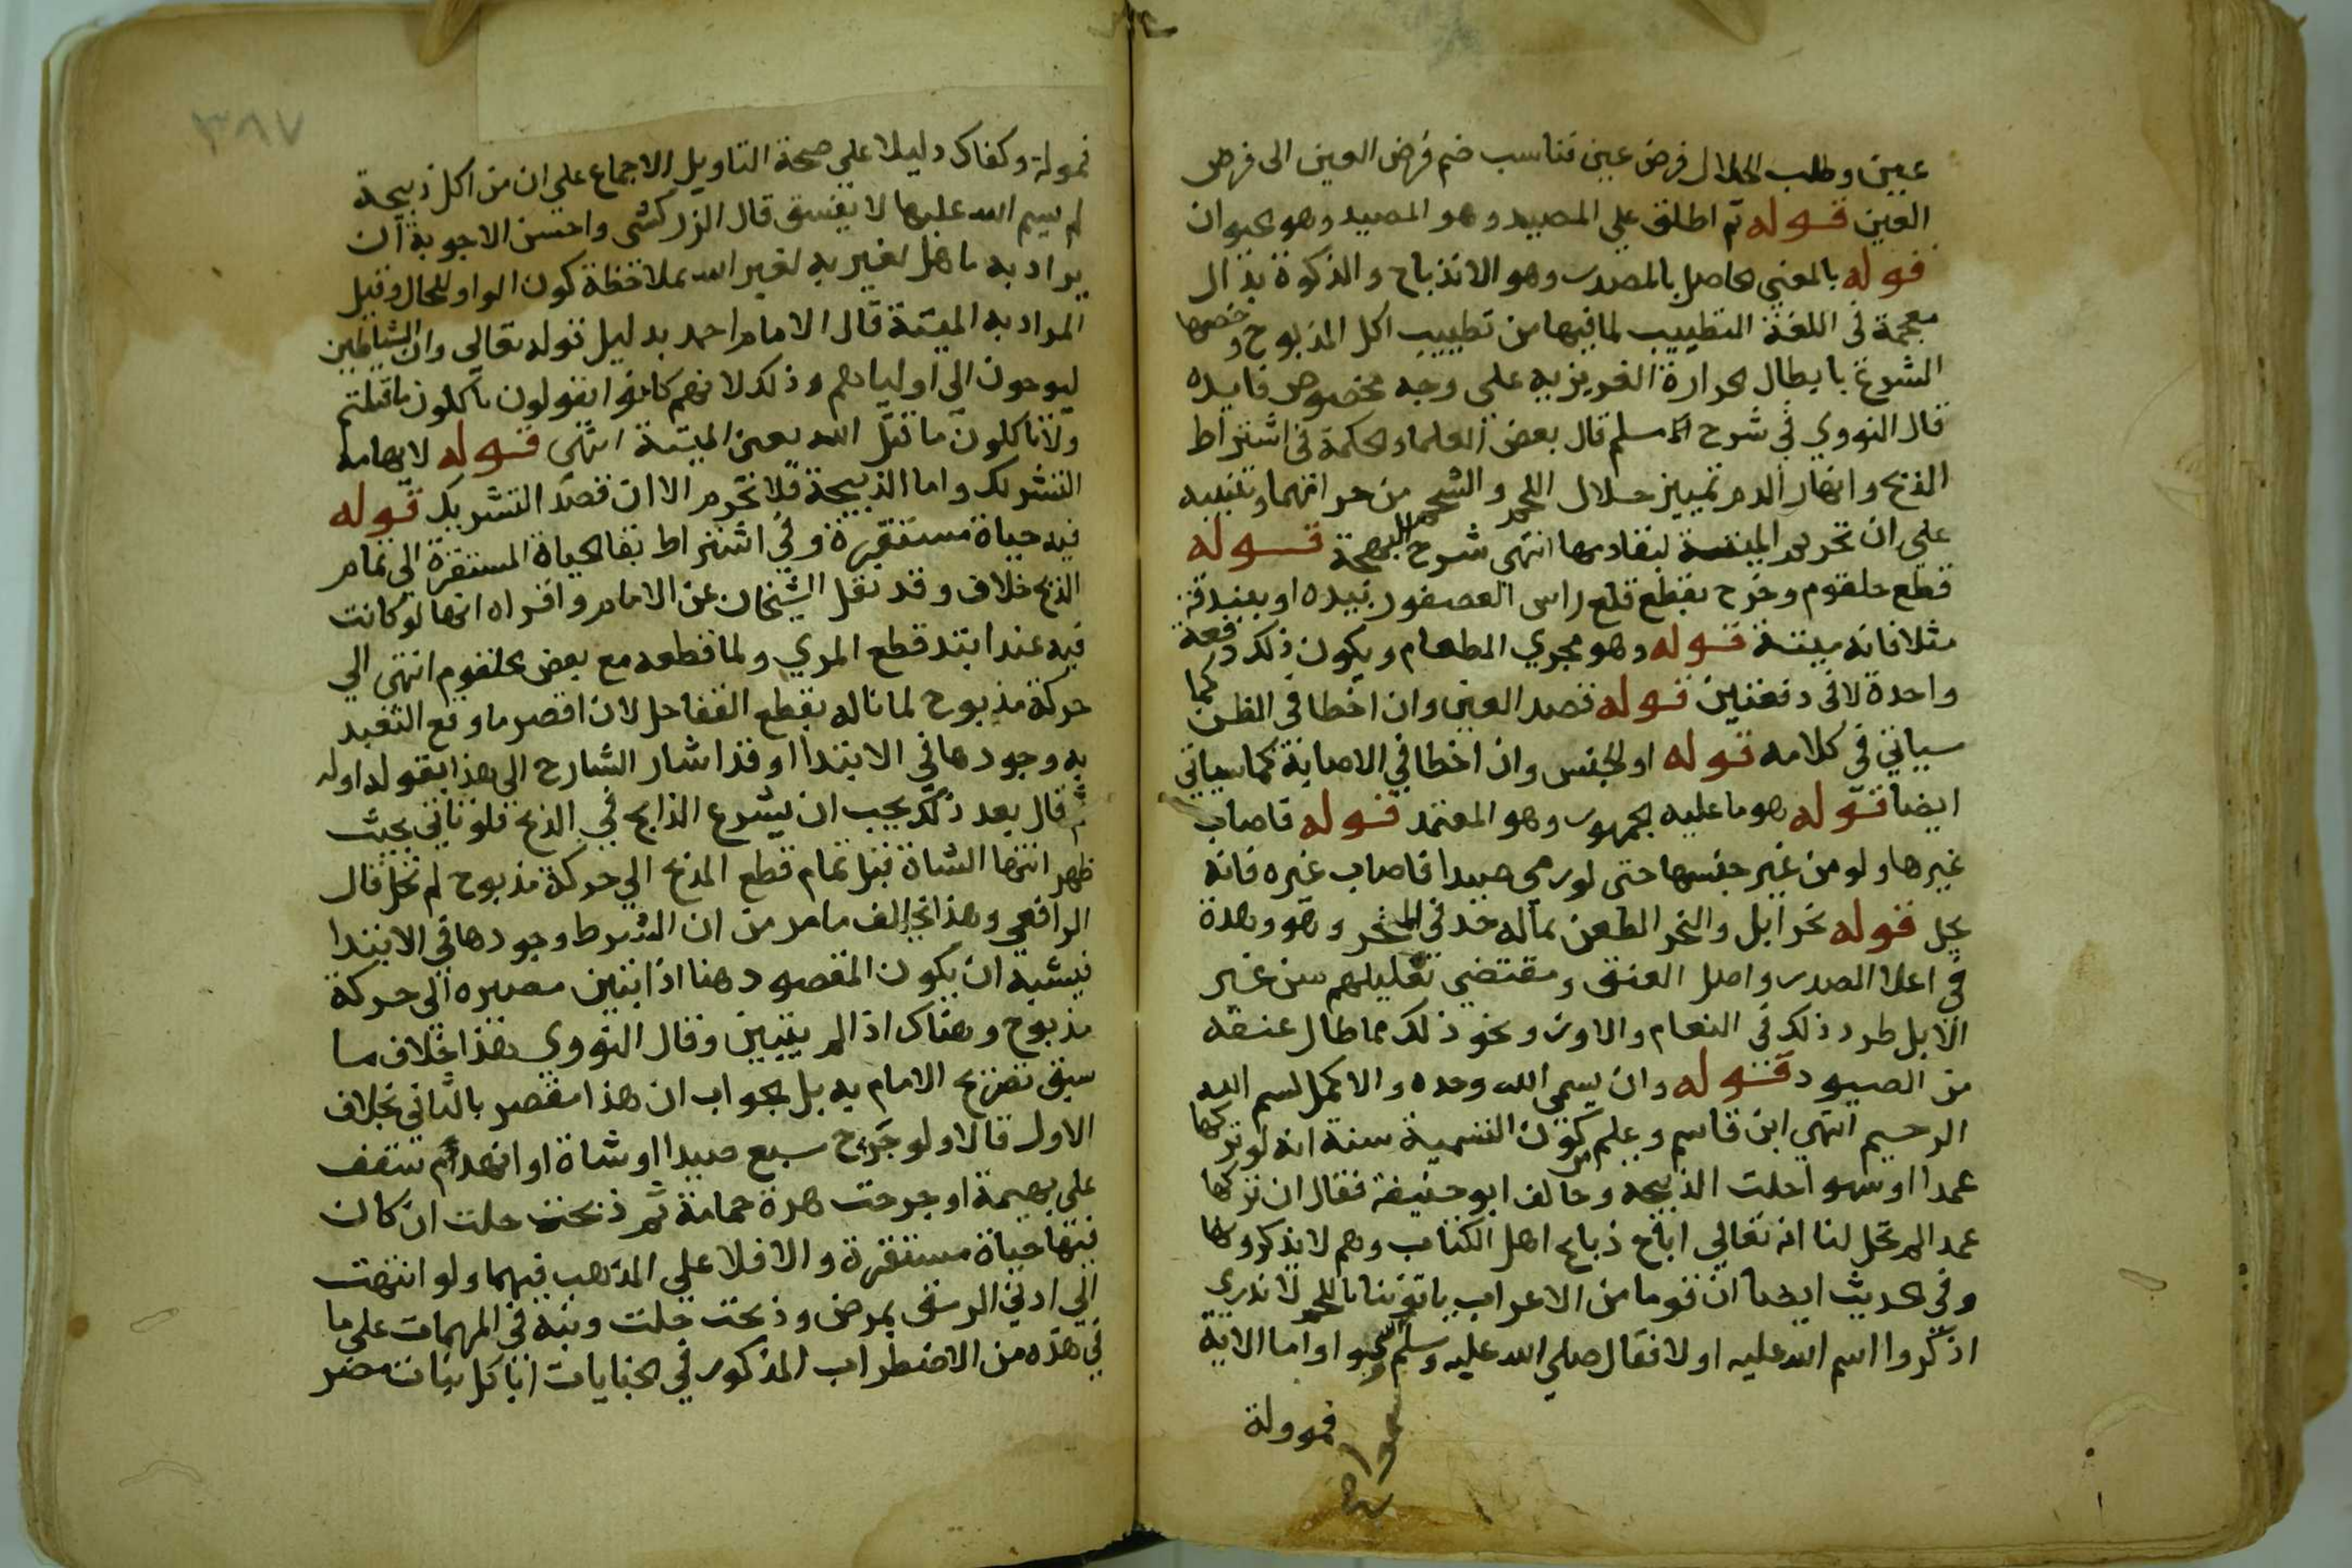 عين وطلب الحلال فرض عين فناسب ضم فرض العين الى فرض
العين قوله ثم اطلق على المصيد وهو المصيد وهو حيوان
قوله بالمعنى الحاصل بالمصدر وهو الانذباح والذكوة بذال
معجمة في اللغة التطييب لما فيها من تطييب اكل المذبوح وخصها
الشرع بابطال الحرارة الغريزيه على وجه مخصوص فايده
قال النووي في شرح مسلم قال بعض العلما والحكمة في اشتراط
الذبح وانهار الدم تمييز حلال اللحم والشحم من حرامهما وتنبيه
على ان تحريم الميتة لبقا دمها انتهى شرح البهجة قوله
قطع حلقوم وخرج بقطع قلع راس العصفور بيده او ببندقة
مثلا فانه ميتة قوله وهو مجري الطعام ويكون ذلك دفعة
واحدة لا في دفعتين قوله قصد العين وان اخطا في الظن كما
سياتي في كلامه قوله او الجنس وان اخطا في الاصابة كما سياتي
ايضا قوله هو ما عليه الجمهور وهو المعتمد قوله فاصاب
غيرها ولو من غير جنسها حتى لو رمى صيدا فاصاب غيره فانه
يحل قوله نحر ابل والنحر الطعن بماله حد في المنحر وهو وهدة
في اعلا الصدر واصل العنق ومقتضى تعليلهم سن غير
الابل طرد ذلك في النعام والاوز ونحو ذلك مما طال عنقه
من الصيود قوله وان يسمي الله وحده والاكمل بسم الله
الرحيم انتهى ابن قاسم وعلم من كون التسمية سنة انه لو تركها
عمدا او سهوا حلت الذبيحه وخالف ابو حنيفة فقال ان تركها
عمدا لم تحل لنا انه تعالى اباح ذبايح اهل الكتاب وهم لا يذكرونها
وفي الحديث ايضا ان قوما من الاعراب ياتوننا باللحم لا ندري
اذكروا اسم الله عليه او لا فقال صلى الله عليه وسلم واما الاية
فموولة
٣٨٧
فمولة وكفاك دليلا على صحة التاويل الاجماع على ان من اكل ذبيحة
لم يسم الله عليها لا يفسق قال الزركشى واحسن الاجوبة ان
يراد به ما هل لغير به لغير الله بملاحظة كون الواو للحال وقيل
المراد به الميتة قال الامام احمد بدليل قوله تعالى وان الشياطين
ليوحون الى اوليايهم وذلك لانهم كانوا يقولون تاكلون ما قتلتم
ولا تاكلون ما قتل الله يعني الميتة انتهى قوله لايهامه
التشريك واما الذبيحة فلا تحرم الا ان قصد التشريك قوله
فيه حياة مستقرة وفي اشتراط بقا الحياة المستقرة الى تمام
الذبح خلاف وقد نقل الشيخان عن الامام واقراه انها لو كانت
فيه عند ابتدا قطع المري ولما قطعه مع بعض الحلقوم انتهى الى
حركة مذبوح لما ناله بقطع القفا حل لان اقصر ما وقع التعبد
به وجودها في الابتدا وقد اشار الشارح الى هذا بقوله اوله
ثم قال بعد ذلك يجب ان يسرع الذابح في الذبح فلو تاني بحيث
ظهر انتها الشاة قبل تمام قطع المذبح الى حركة مذبوح لم تحل قال
الرافعي وهذا يخالف ما مر من ان الشرط وجودها في الابتدا
فيشبه ان يكون المقصود هنا اذا تبين مصيره الى حركة
مذبوح وهناك اذا لم يتبين وقال النووي هذا خلاف ما
سبق تصريح الامام به بل الجواب ان هذا مقصر بالتاني بخلاف
الاول قالا ولو جرح سبع صيدا او شاة او انهدم سقف
على بهيمة او جرحت هرة حمامة ثم ذبحت حلت ان كان
فيها حياة مستقرة والا فلا على المذهب فيهما ولو انتهت
الى ادنى الرمق بمرض وذبحت حلت ونبه في المهمات على ما
في هذه من الاضطراب المذكور في الجنايات انا كل نبات مضر